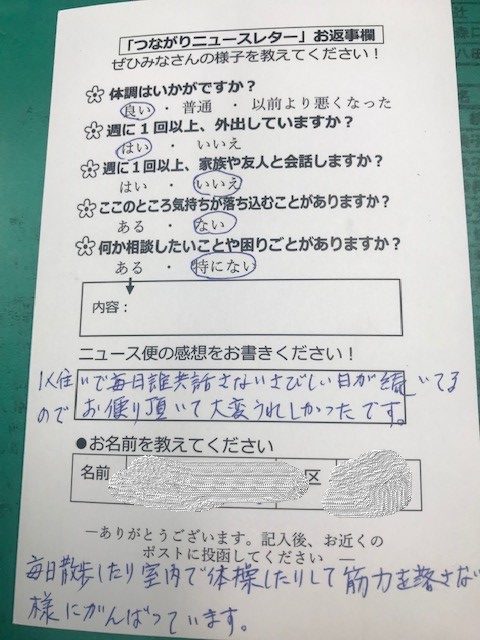 「つながりニュースレター」お返事欄
ぜひみなさんの様子を教えてください！
体調はいかがですか？
良い ・ 普通 ・ 以前より悪くなった
週に１回以上、外出していますか？
はい ・ いいえ
週に１回以上、家族や友人と会話しますか？
はい ・ いいえ
ここのところ気持ちが落ち込むことがありますか？
ある ・ ない
何か相談したいことや困りごとがありますか？
ある ・ 特にない
内容：
ニュース便の感想をお書きください！
1人住いで毎日誰共話さないさびしい日が続いてる
のでお便り頂いて大変うれしかったです。
●お名前を教えてください
名前
区
―ありがとうございます。記入後、お近くの
ポストに投函してください―
毎日散歩したり室内で体操したりして筋力を落さない
様にがんばっています。